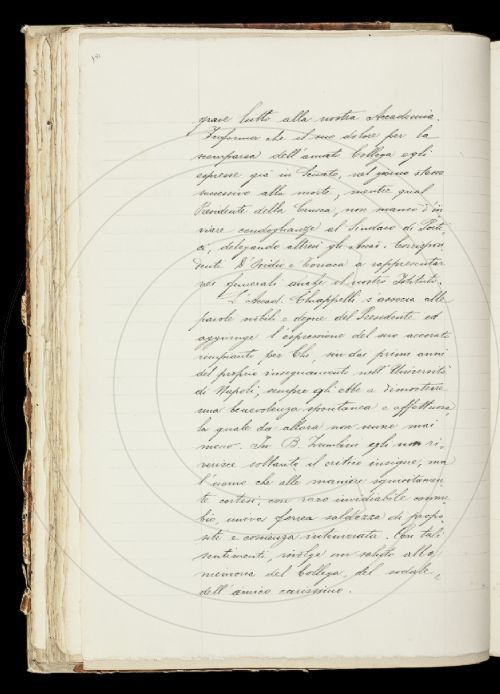 grave lutto alla nostra Accademia.
Informa che il suo dolore per la
scomparsa dell'amato Collega egli
espresse già in Senato, nel giorno stesso
successivo alla morte, mentre qual
Presidente della Crusca, non mancò d'in
viare condoglianze al Sindaco di
delegando altresì gli Accad. Corrispon
denti D'Ovidio e Torraca a rappresentar
nei funerali anche il nostro Istituto.
L'Accad. Chiappelli s'associa alle
parole nobili e degne del Presidente ed
aggiunge l'espressione del suo accorato
rimpianto per Chi, sin dai primi anni
del proprio insegnamento nell'Università
di Napoli, sempre gli ebbe a dimostrare
una benevolenza spontanea e affettuosa
la quale da allora non venne mai
meno. In B. Zumbini egli non ri-
verisce soltanto il critico insigne, ma
l'uomo che alle maniere squisitamen
te cortesi, con raro invidiabile connu
bio, univa ferrea saldezza di propo
siti e coscienza intemerata. Con tali
sentimenti, rivolge un saluto alla
memoria del Collega, del sodale,
dell'amico carissimo.